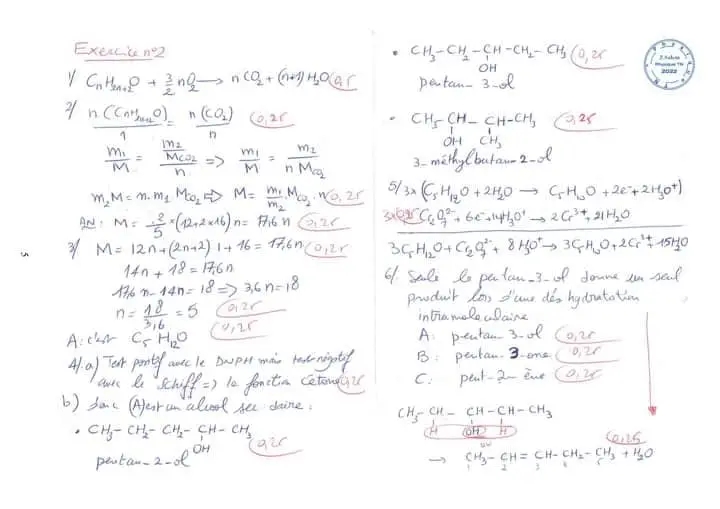 Exercice n°2
1/ CnH2n+2O + 3/2 nO2 → n CO2 + (n+1) H2O 0,25
2/ n(CnH2n+2O)/1 = n(CO2)/n 0,25
m1/M = (m2/MCO2)/n => m1/M = m2/(n MCO2)
m2M = n.m1 MCO2 => M = m1/m2 . MCO2 . n 0,25
AN: M = 2/5 * (12+2*16) n = 17,6 n 0,25
3/ M = 12n + (2n+2) 1 + 16 = 17,6n 0,25
14n + 18 = 17,6n
17,6n - 14n = 18 => 3,6n = 18
n = 18/3,6 = 5 0,25
A: c'est C5H12O 0,25
4/ a) Test positif avec le DNPH mais test négatif
avec le Schiff => la fonction Cétone 0,25
b) donc (A) est un alcool secondaire:
• CH3- CH2- CH2- CH - CH3 0,25
OH
pentan-2-ol
• CH3- CH2 - CH - CH2 - CH3 0,25
OH
pentan-3-ol
• CH3- CH - CH-CH3 0,25
OH CH3
3-méthylbutan-2-ol
5/ 3x (C5H12O + 2H2O → C5H10O + 2e- + 2H3O+)
0,25 Cr2O7 2- + 6e- + 14H3O+ → 2Cr3+ + 21H2O
3C5H12O + Cr2O7 2- + 8H3O+ → 3C5H10O + 2Cr3+ + 15H2O
6/ Seule le pentan-3-ol donne un seul
produit lors d'une déshydratation
intramoleculaire
A: pentan-3-ol 0,25
B: pentan-3-one 0,25
C: pent-2-ène 0,25
CH3- CH - CH - CH - CH3
H OH H
ou
0,25
→ CH3- CH = CH - CH2 - CH3 + H2O
1 2 3 4 5
5
2022